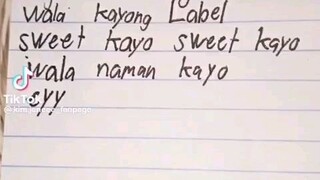 wala kayong Label
sweet kayo sweet kayo
wala naman kayo
syy
TikTok